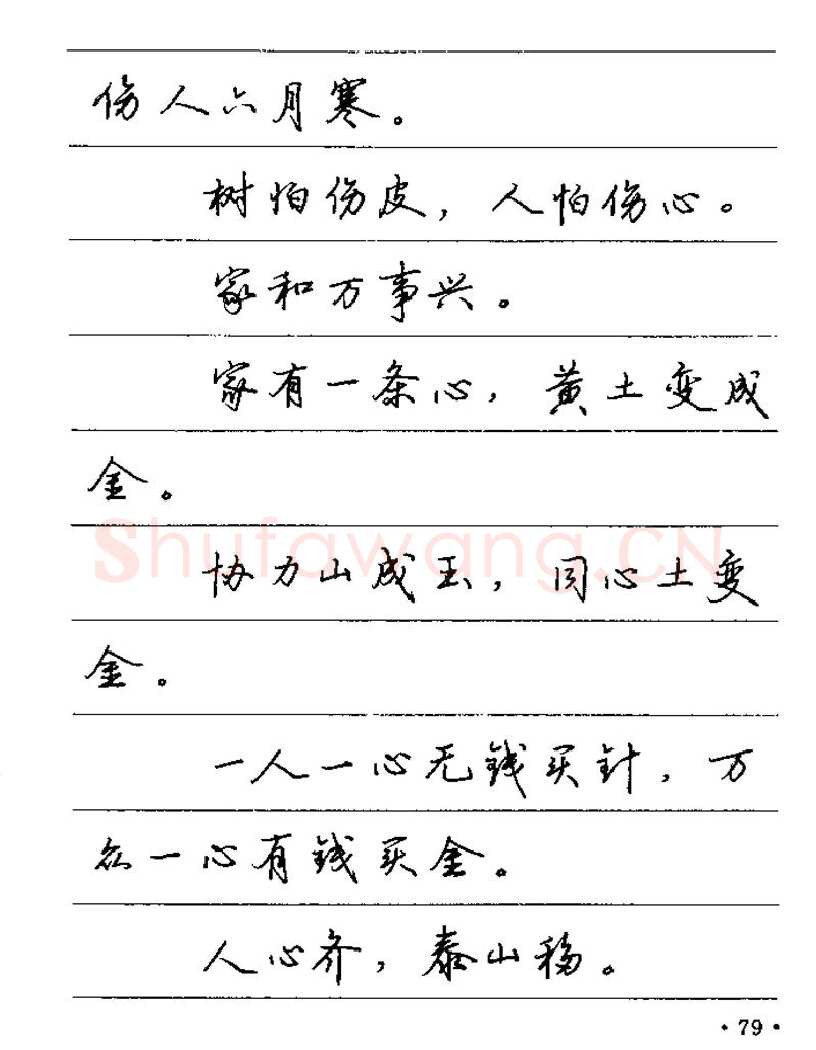 伤人六月寒。
树怕伤皮，人怕伤心。
家和万事兴。
家有一条心，黄土变成
金。
Shufawang.CN
协力山成玉，同心土变
金。
一人一心无钱买针，万
众一心有钱买金。
人心齐，泰山移。
·79·